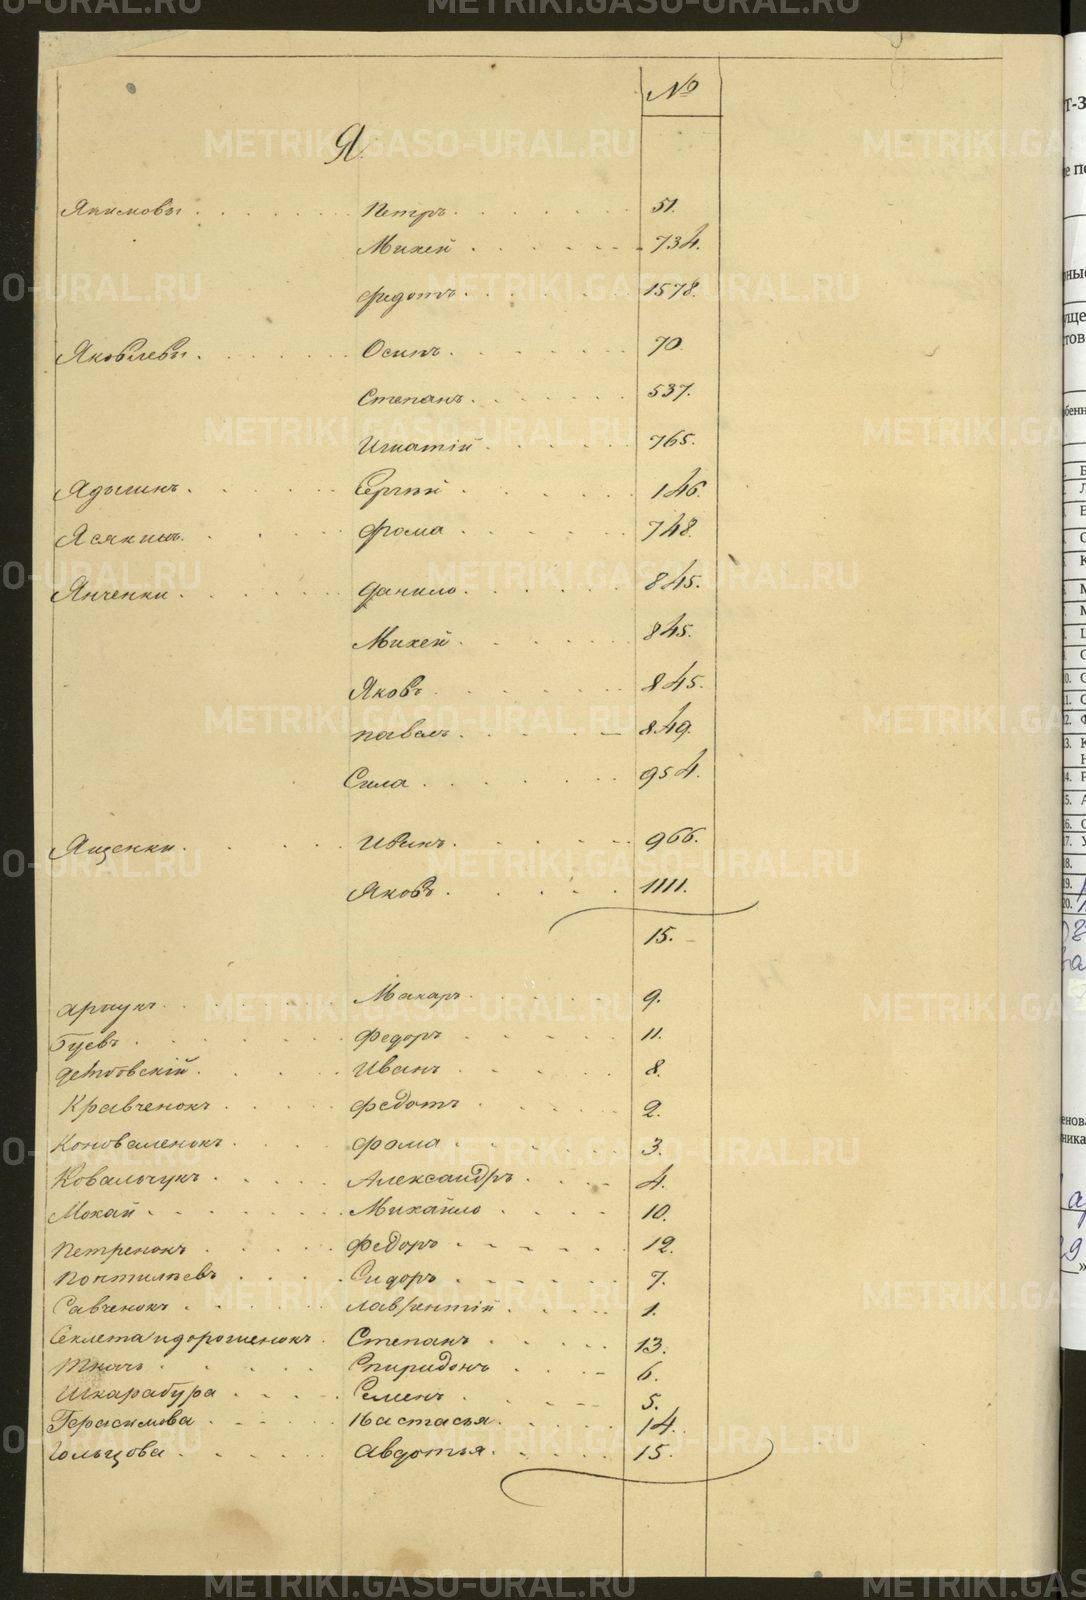 №
Я.
Якимовы Петръ. 51.
Михей 734.
Федотъ. 1578.
Яковлевы. Осипъ. 70.
Степанъ. 537.
Игнатій. 765.
Ядыгинъ. Сергѣй 146.
Фома 748.
Янченки. Данило. 845.
Михей. 845.
Яковъ. 845.
Павелъ. 849.
Сила 954.
Ященки. Иванъ. 966.
Яковъ. 1111.
15.
Макаръ. 9.
Гуевъ. Федоръ. 11.
Иванъ 8.
Кравченокъ Федотъ 2.
Коноваленокъ Фома 3.
Ковальчукъ. Александръ. 4.
Мокай Михайло 10.
Петренокъ Федоръ 12.
Сидоръ. 7.
Савченокъ Лаврентій 1.
Степанъ. 13.
Ткачъ. Спиридонъ 6.
Шкарабура Семенъ. 5.
Герасимова Настасья. 14.
Гольцова Авдотья. 15.
METRIKI.GASO-URAL.RU